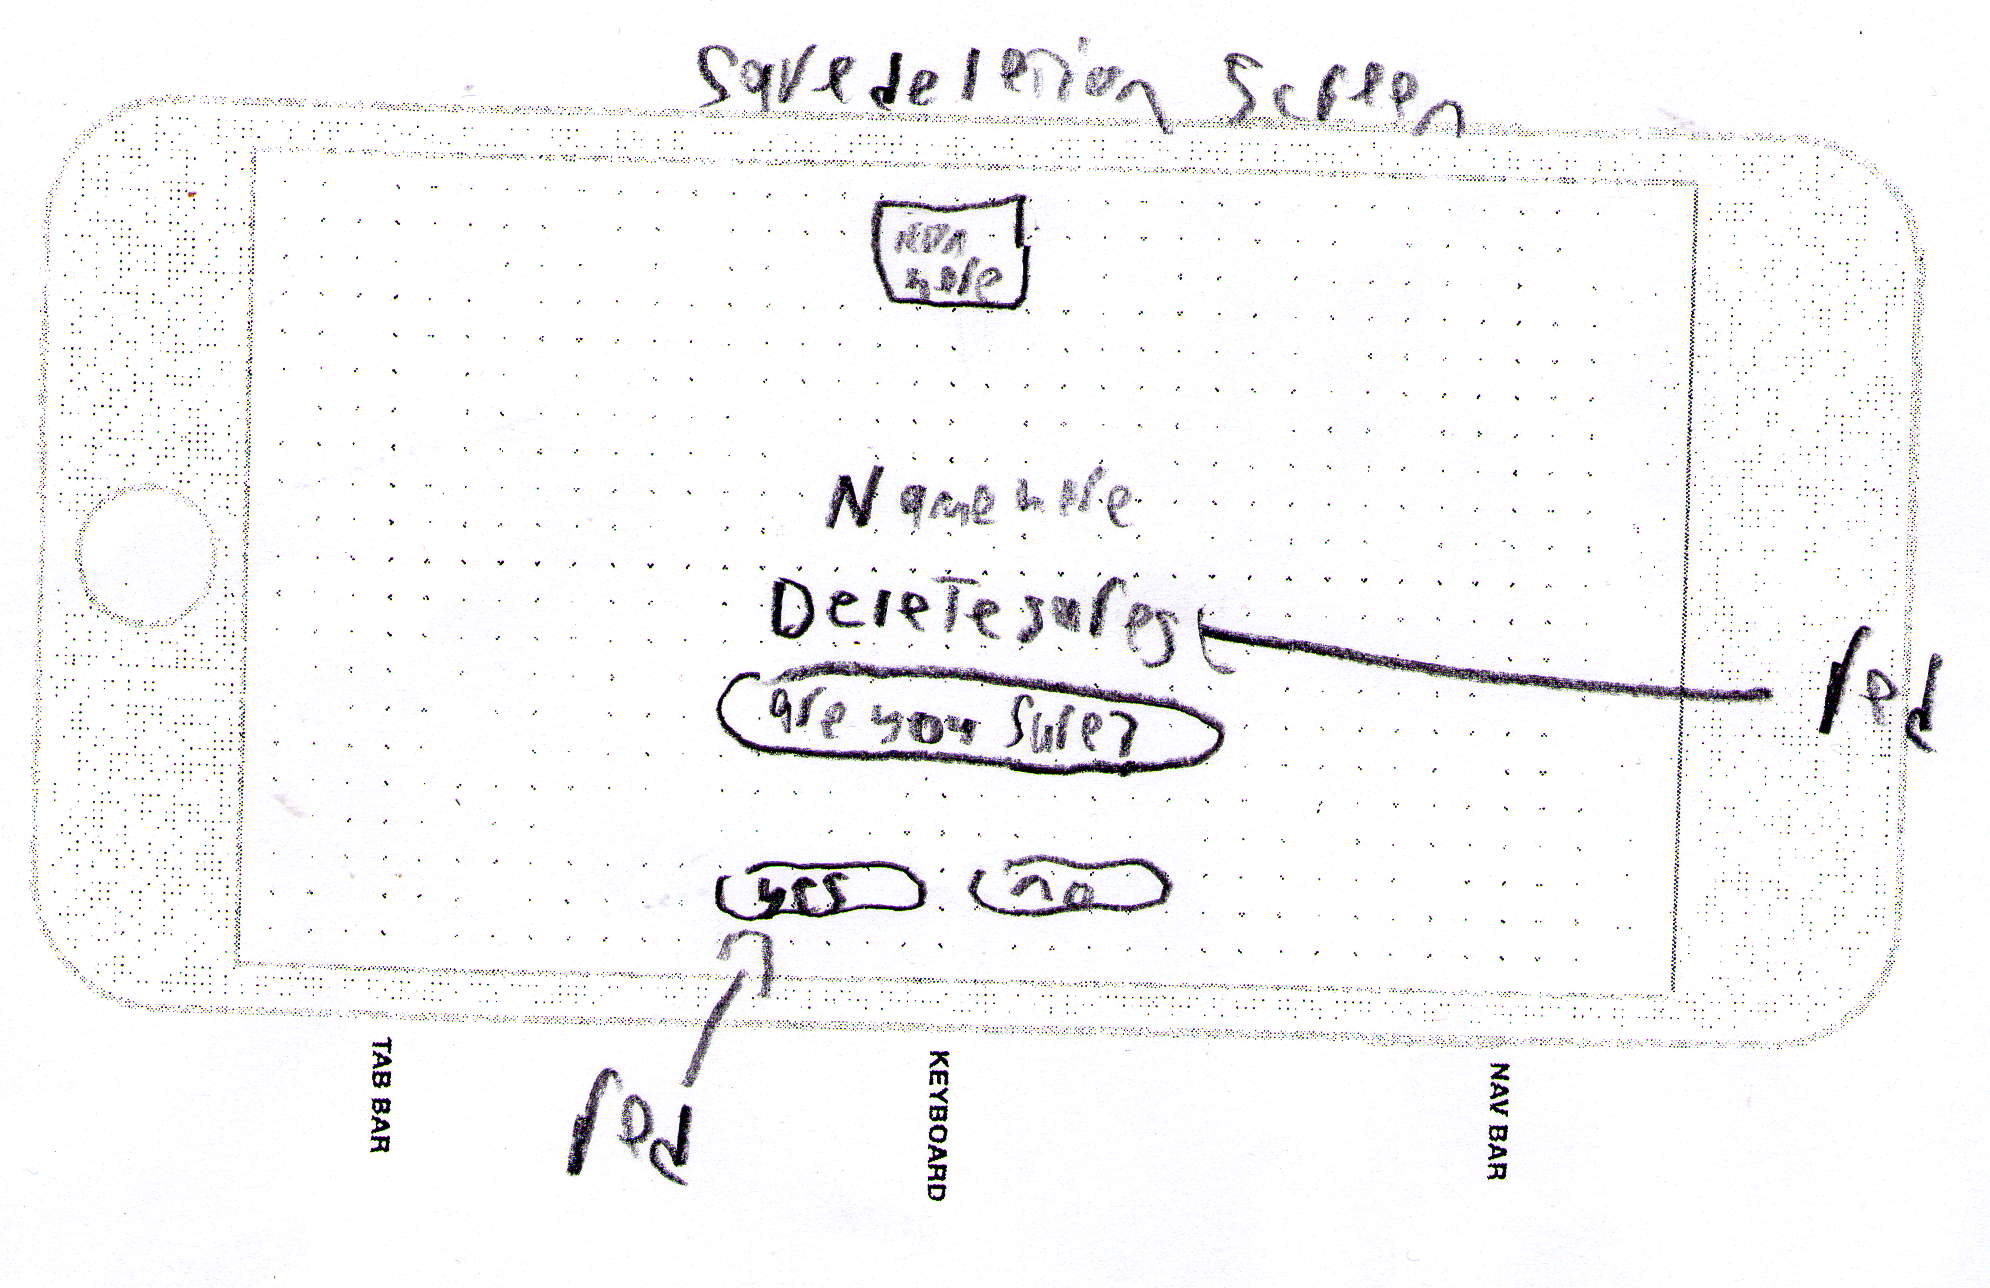 Save deletion Screen
icon
here
Name here
Delete saves
red
are you sure?
yes
no
red
TAB BAR
KEYBOARD
NAV BAR